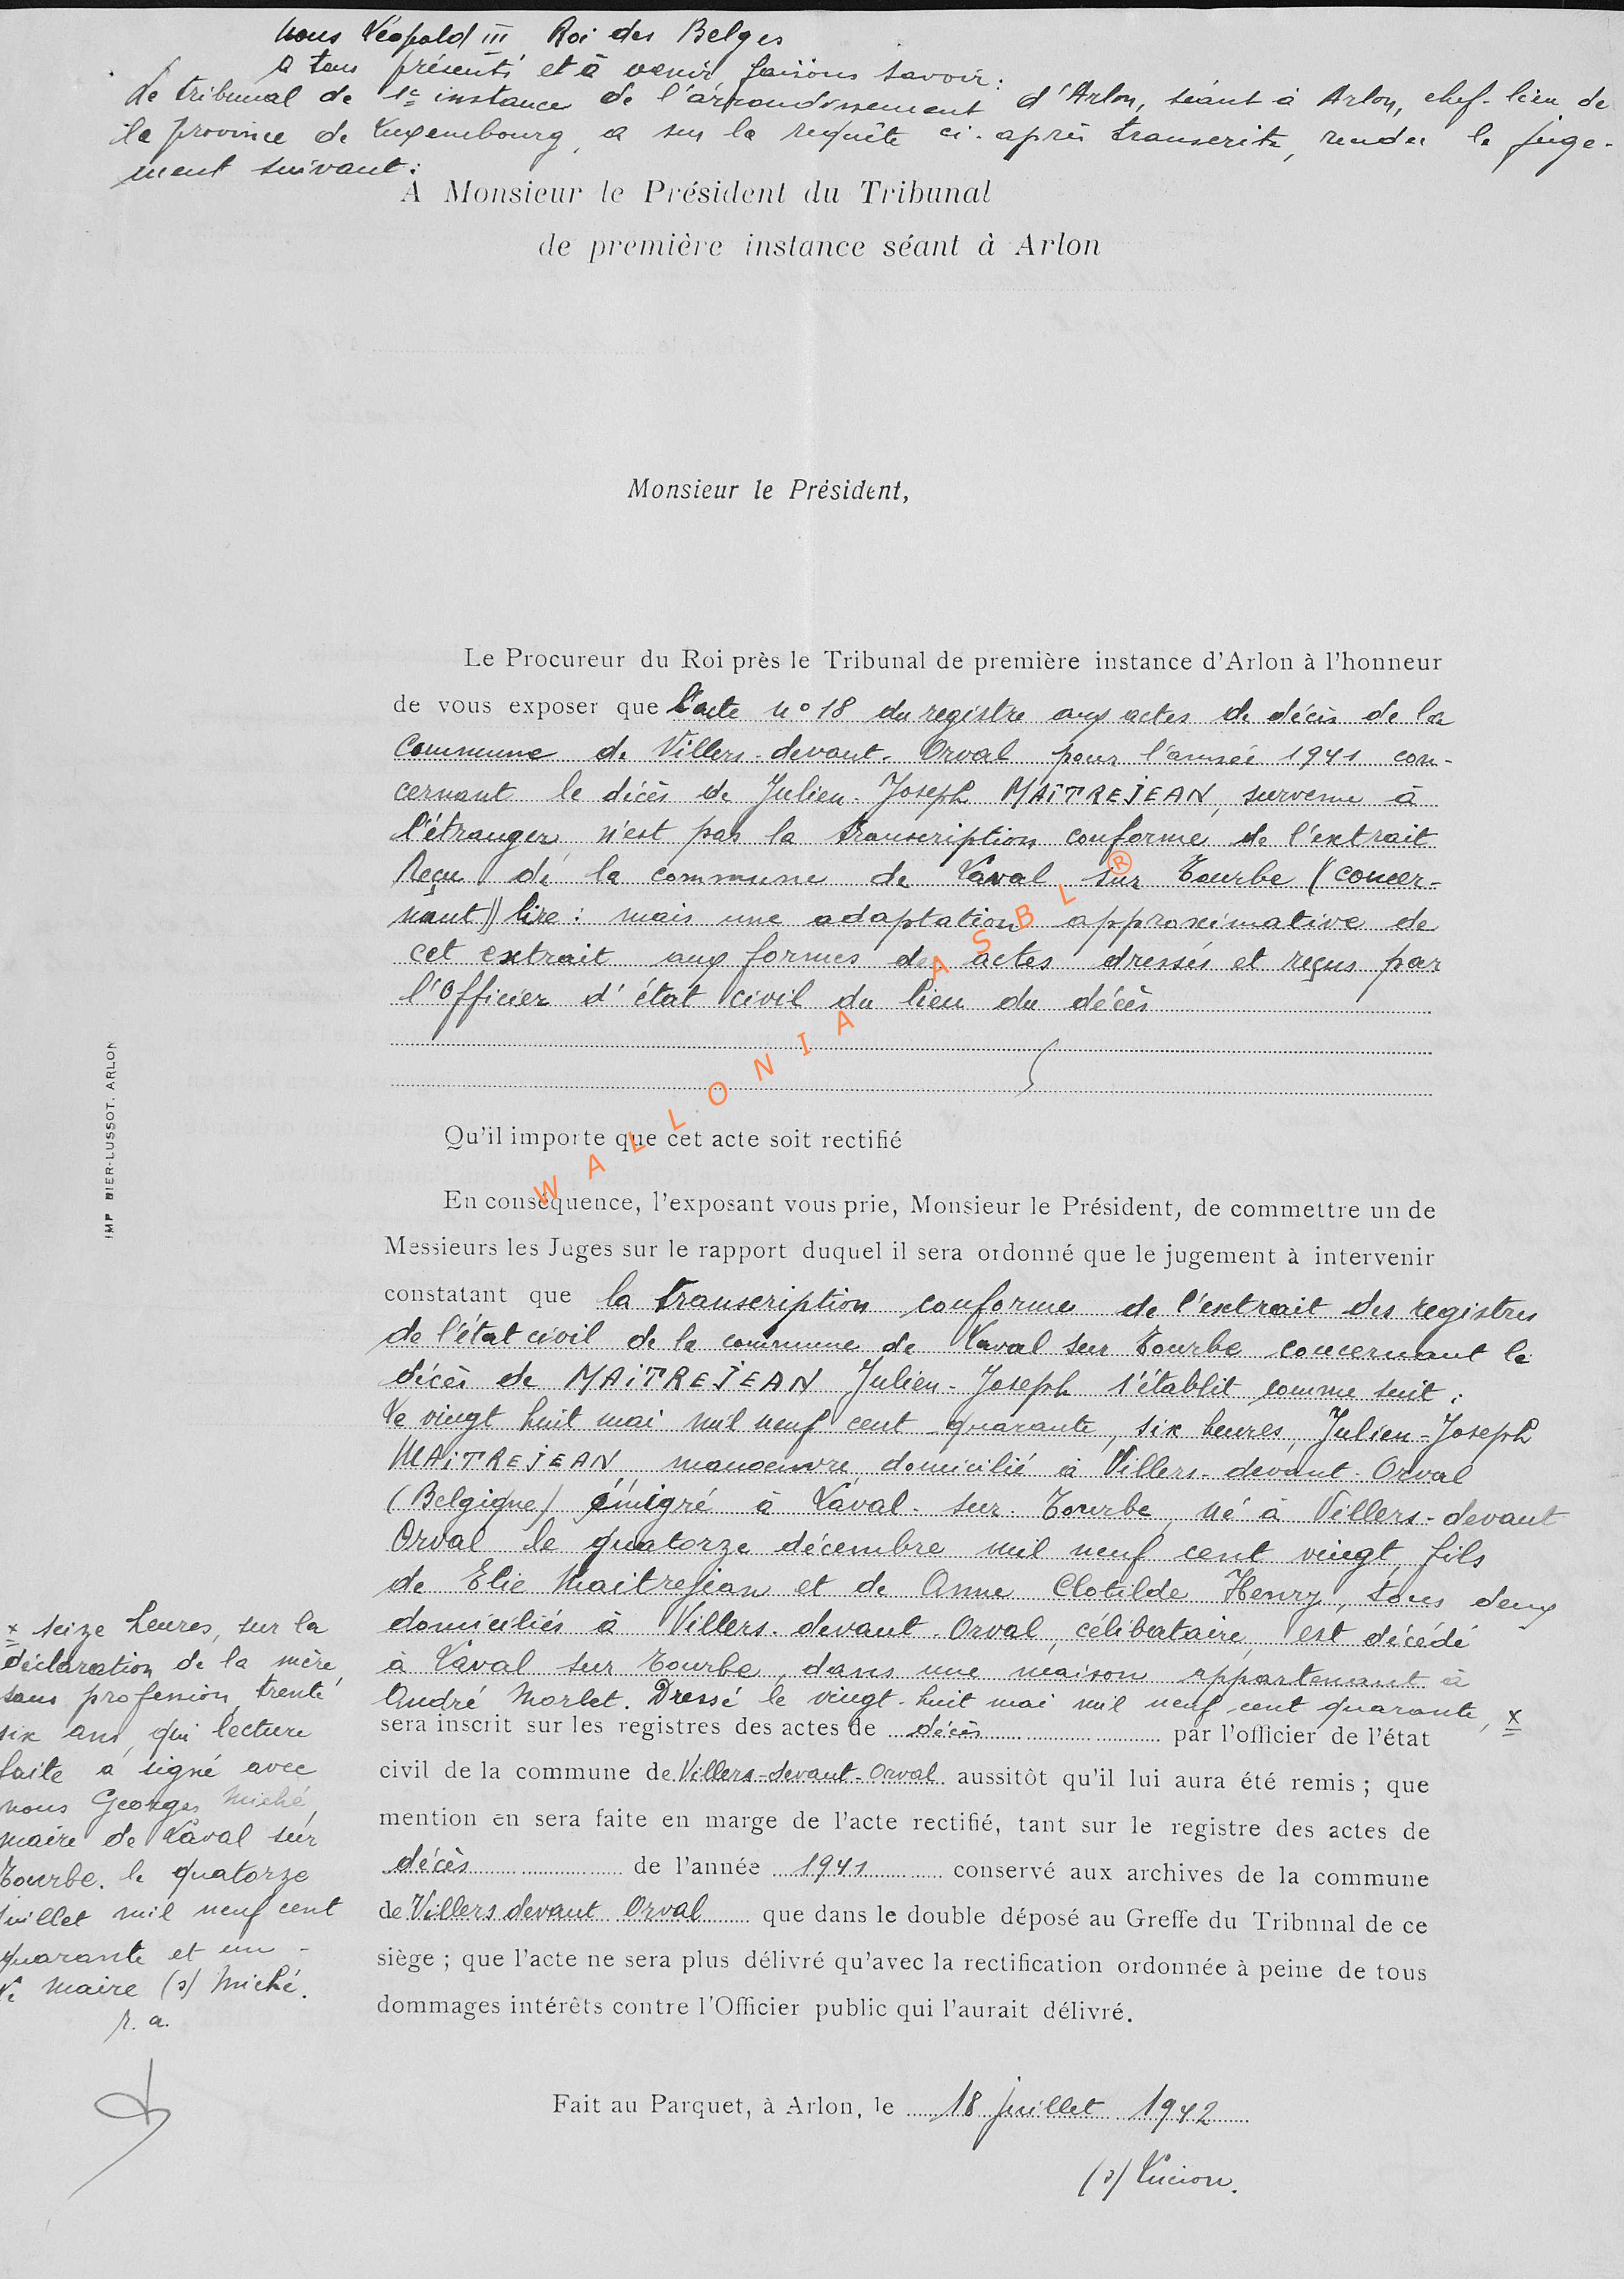 Nous Léopold III Roi des Belges
A tous présents et à venir faisons savoir:
Le tribunal de 1e instance de l'arrondissement d'Arlon, séant à Arlon, chef-lieu de
la province de Luxembourg, a sur la requête ci-après transcrite, rendu le juge-
ment suivant:
A Monsieur le Président du Tribunal
de première instance séant à Arlon
Monsieur le Président,
Le Procureur du Roi près le Tribunal de première instance d'Arlon à l'honneur
de vous exposer que l'acte n° 18 du registre aux actes de décès de la
commune de Villers-devant-Orval pour l'année 1941 con-
cernant le décès de Julien-Joseph MAITREJEAN, survenu à
l'étranger n'est pas la transcription conforme de l'extrait
Reçu de la commune de Laval sur Tourbe (concer-
nant) lire: mais une adaptation approximative de
cet extrait aux formes des actes dressés et reçus par
l'Officier d'état civil du lieu du décès
Qu'il importe que cet acte soit rectifié
En conséquence, l'exposant vous prie, Monsieur le Président, de commettre un de
Messieurs les Juges sur le rapport duquel il sera ordonné que le jugement à intervenir
constatant que la transcription conforme de l'extrait des registres
de l'état civil de la commune de Laval sur Tourbe concernant le
décès de MAITREJEAN Julien-Joseph s'établit comme suit:
Le vingt huit mai mil neuf cent quarante, six heures, Julien-Joseph
MAITREJEAN manoeuvre, domicilié à Villers-devant-Orval
(Belgique) émigré à Laval-sur-Tourbe, né à Villers-devant
Orval le quatorze décembre mil neuf cent vingt, fils
de Elie Maitrejean et de Anne Clotilde Henry, tous deux
domiciliés à Villers-devant-Orval, célibataire, est décédé
à Laval sur Tourbe, dans une maison appartenant à
André Morlet. Dressé le vingt-huit mai mil neuf cent quarante, x
sera inscrit sur les registres des actes de décès par l'officier de l'état
civil de la commune de Villers-devant-Orval aussitôt qu'il lui aura été remis ; que
mention en sera faite en marge de l'acte rectifié, tant sur le registre des actes de
décès de l'année 1941 conservé aux archives de la commune
de Villers devant Orval que dans le double déposé au Greffe du Tribnnal de ce
siège ; que l'acte ne sera plus délivré qu'avec la rectification ordonnée à peine de tous
dommages intérêts contre l'Officier public qui l'aurait délivré.
x seize heures, sur la
déclaration de la mère,
sans profession, trente
six ans, qui lecture
faite a signé avec
nous Georges Miché,
maire de Laval sur
Tourbe. le quatorze
juillet mil neuf cent
quarante et un -
Le Maire (s) Miché.
r. a.
Fait au Parquet, à Arlon, le 18 juillet 1942
(s) Lucion.
IMP BIER-LUSSOT. ARLON
WALLONIA ASBL ®